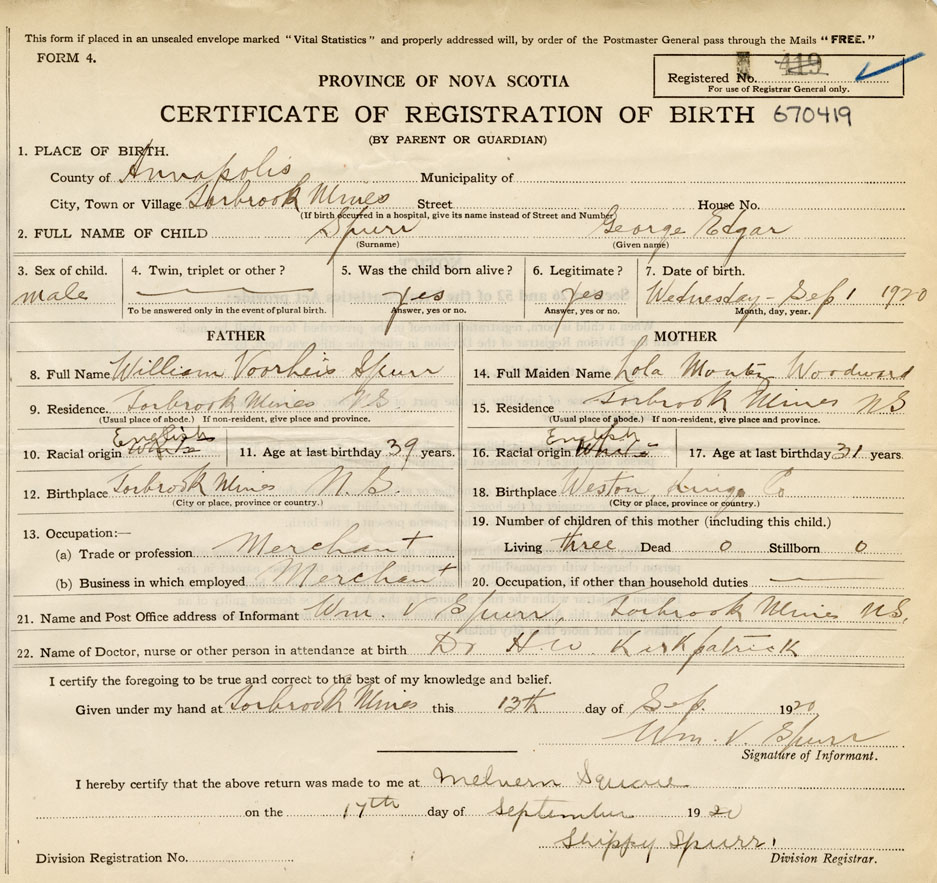 This form if placed in an unsealed envelope marked "Vital Statistics" and properly addressed will, by order of the Postmaster General pass through the Mails "FREE."
FORM 4.
Registered No. 419
For use of Registrar General only.
PROVINCE OF NOVA SCOTIA
CERTIFICATE OF REGISTRATION OF BIRTH 670419
(BY PARENT OR GUARDIAN)
1. PLACE OF BIRTH.
County of Annapolis Municipality of
City, Town or Village Torbrook Mines Street House No.
(If birth occurred in a hospital, give its name instead of Street and Number)
2. FULL NAME OF CHILD Spurr George Edgar
(Surname) (Given name)
3. Sex of child. 4. Twin, triplet or other? 5. Was the child born alive? 6. Legitimate? 7. Date of birth.
male yes yes Wednesday - Sep 1 1920
To be answered only in the event of plural birth. Answer, yes or no. Answer, yes or no. Month, day, year.
FATHER MOTHER
8. Full Name William Voorheis Spurr 14. Full Maiden Name Lola Montez Woodward
9. Residence. Torbrook Mines N.S. 15. Residence Torbrook Mines NS
(Usual place of abode.) If non-resident, give place and province. (Usual place of abode.) If non-resident, give place and province.
English English
10. Racial origin White 11. Age at last birthday 39 years. 16. Racial origin White 17. Age at last birthday 31 years.
12. Birthplace Torbrook Mines N.S. 18. Birthplace Weston, Kings Co
(City or place, province or country.) (City or place, province or country.)
13. Occupation:— 19. Number of children of this mother (including this child.)
(a) Trade or profession Merchant Living three Dead 0 Stillborn 0
(b) Business in which employed Merchant 20. Occupation, if other than household duties
21. Name and Post Office address of Informant Wm. V Spurr, Torbrook Mines NS.
22. Name of Doctor, nurse or other person in attendance at birth Dr H.W. Kirkpatrick
I certify the foregoing to be true and correct to the best of my knowledge and belief.
Given under my hand at Torbrook Mines this 13th day of Sep. 1920
Wm. V. Spurr
Signature of Informant.
I hereby certify that the above return was made to me at Melvern Square
on the 17th day of September 1920
Shippy Spurr.
Division Registration No. Division Registrar.